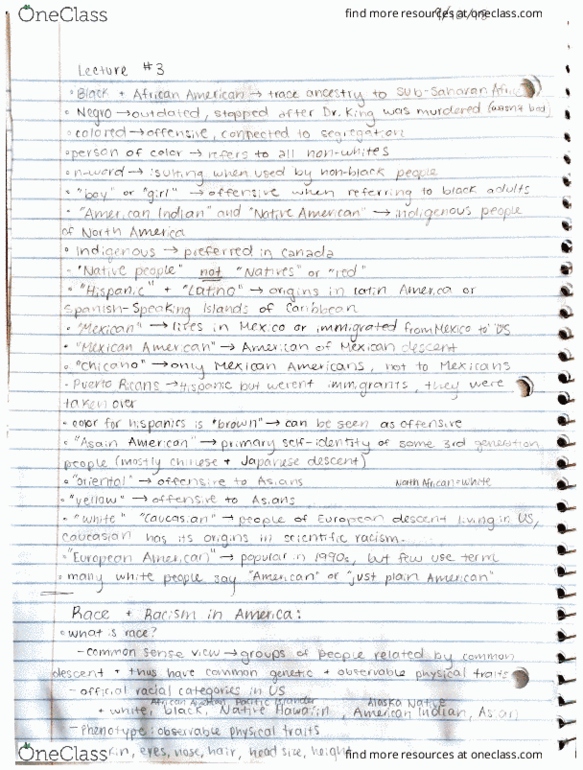 OneClass
find more resources at oneclass.com
Lecture #3
• Black + African American → trace ancestry to sub-Saharan
• Negro → outdated, stopped after Dr. King was murdered (wasnt bad)
• colored → offensive, connected to segregation
• person of color → refers to all non-whites
• n-word → isulting when used by non-black people
• "boy" or "girl" → offensive when referring to black adults
• "American Indian" and "Native American" → indigenous people
of North America
• Indigenous → preferred in canada
• "Native people" not "Natives" or "red"
• "Hispanic" + "Latino" → origins in latin America or
Spanish-Speaking Islands of Caribbean
• "Mexican" → lives in Mexico or immigrated from Mexico to US
• "Mexican American" → American of Mexican descent
• "chicano" → only Mexican Americans, not to Mexicans
• Puerto Ricans → Hispanic but werent immigrants, they were
taken over
• color for hispanics is "brown" → can be seen as offensive
• "Asain American" → primary self-identity of some 3rd generation
people (mostly chinese + Japanese descent)
• "oriental" → offensive to Asians North African = white
• "yellow" → offensive to Asians
• "white" "Caucasian" → people of European descent living in US,
caucasian has its origins in scientific racism.
• "European American" → popular in 1990s, but few use term
• many white people say "American" or "just plain American"
Race + Racism in America:
• what is race?
- common sense view → groups of people related by common
descent + thus have common genetic + observable physical traits
- official racial categories in US
African American Pacific Islander Alaska Native
+ white, black, Native Hawaiin, American Indian, Asian
- Phenotype: observable physical traits
skin, eyes, nose, hair, head size, height
OneClass
find more resources at oneclass.com